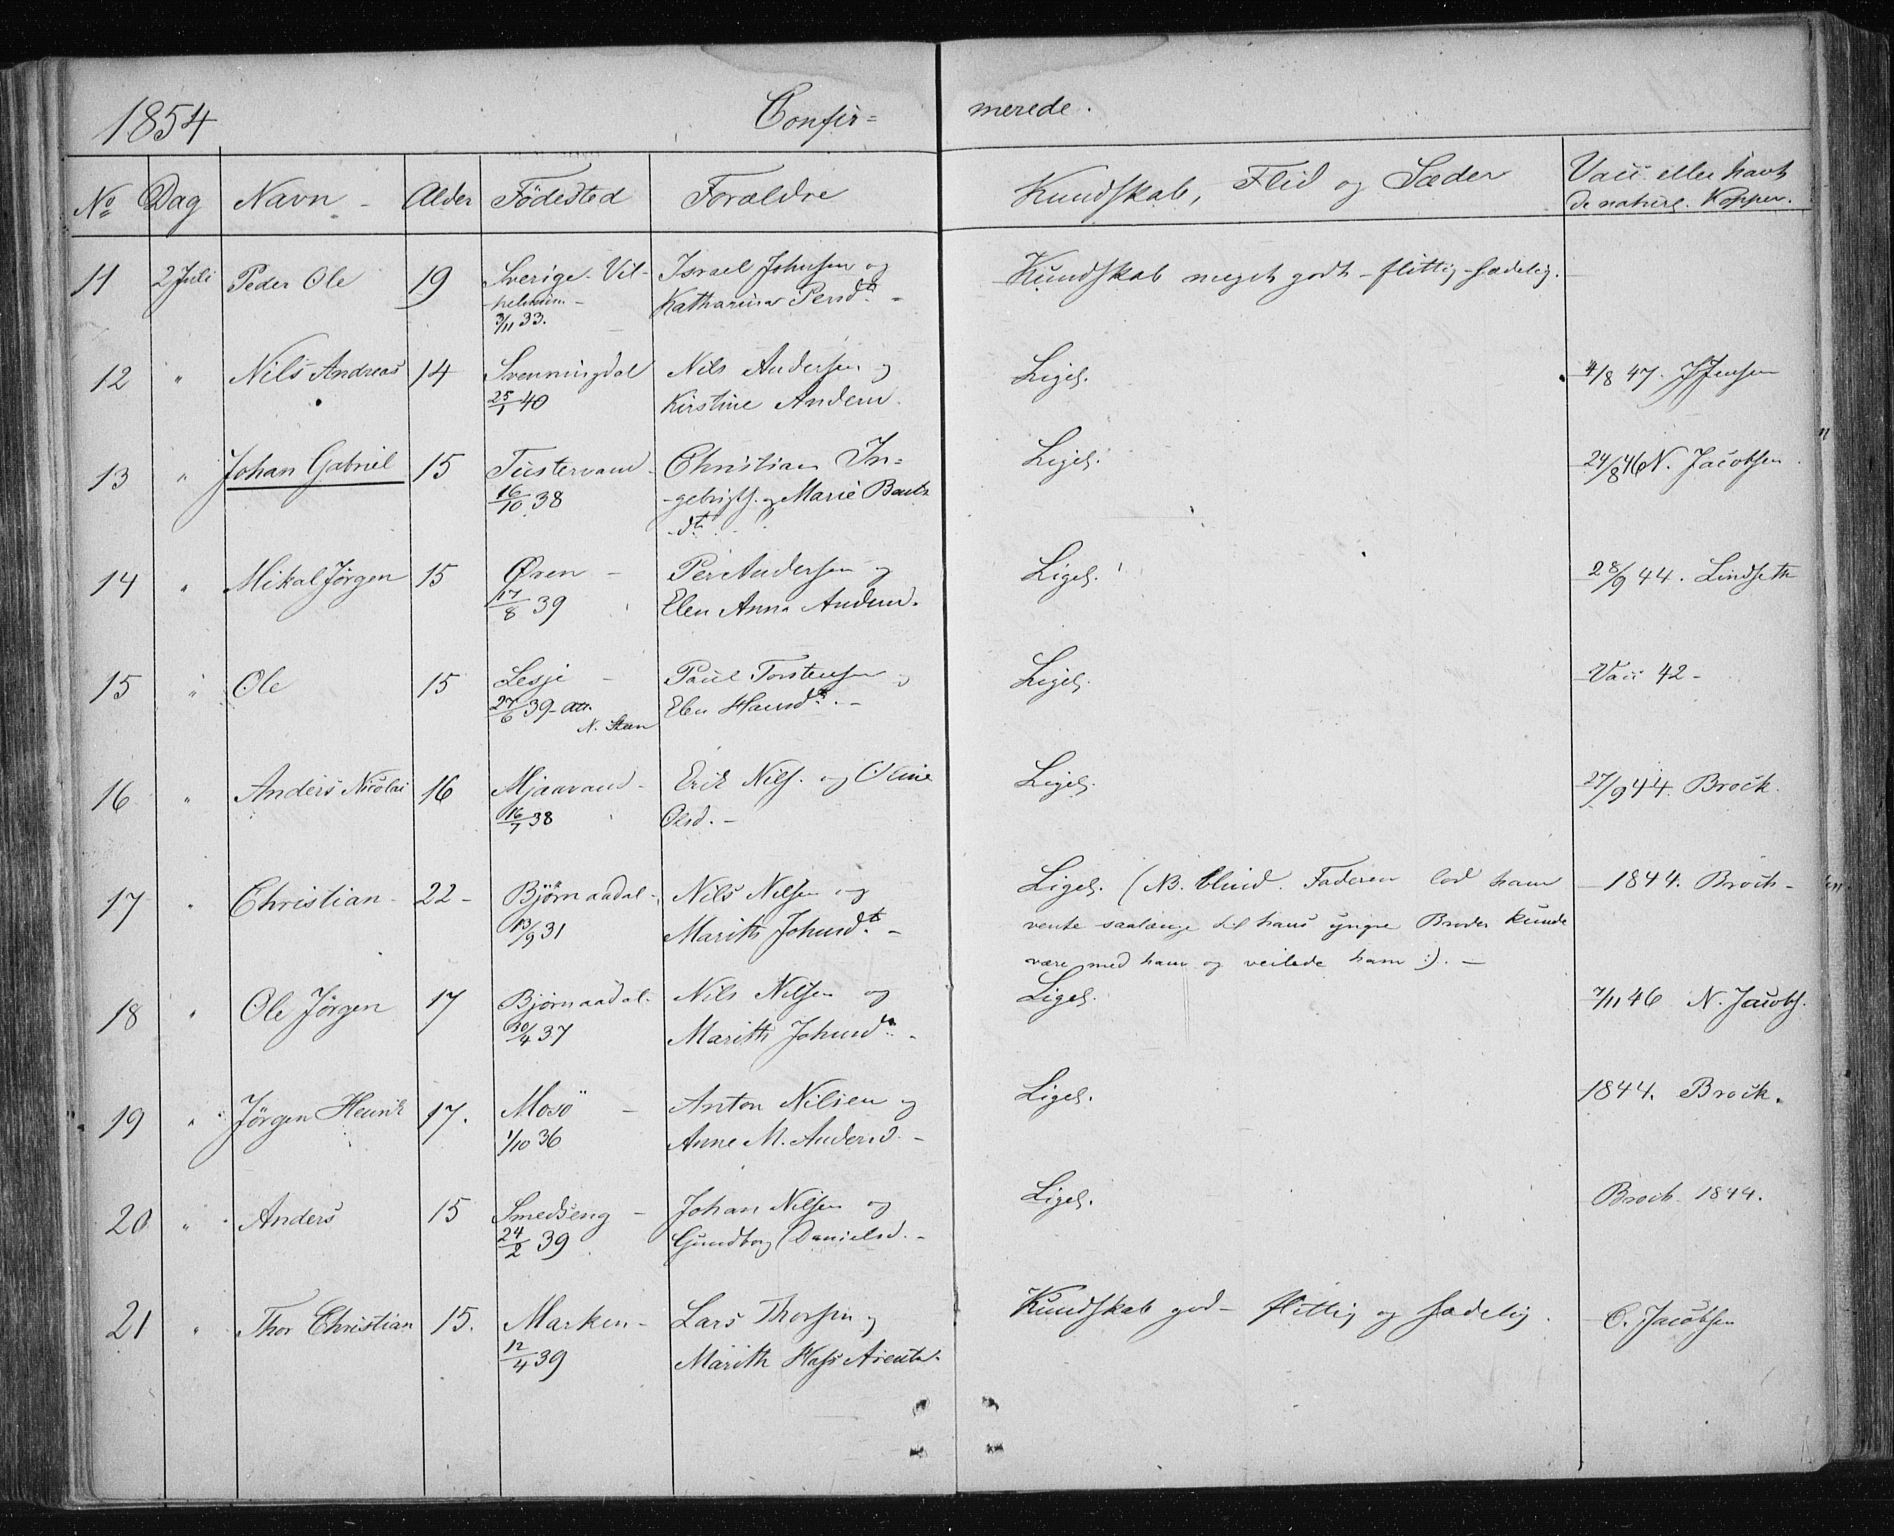 1854 Confir= merede.
No Dag Navn - Alder Födested Forældre Kundskab, Flid og Sæder Vacc. eller havt
de naturl. Kopper.
11 2 Juli Peder Ole 19 Sverige - Vil- Israel Johnsen og Kundskab meget godt - flittig - sædelig.
helmin - Katharina Persdt. -
3/11 33.
12 " Nils Andreas 14 Svenningdal Nils Andersen og Ligel. 4/8 47. JJensen
25/1 40 Kirstine Andersd.
13 " Johan Gabriel 15 Tustervand Christian In= Ligel. 24/8 46 N. Jacobsen
16/10 38 -gebrigts. og Marie Bents
dt.
14 " Mikal Jörgen 15 Øren - Per Andersen og Ligel. 28/9 44. Lindseth
17/8 39 Elen Anna Andersd.
15 " Ole 15 Lesje - Paul Torstensen og Ligel. Vacc 42 -
27/6 39 - Att. Elen Hansdt. -
N. Steen
16 " Anders Nicolai 16 Mjaavand - Erik Nils. og Oline Ligel. 27/9 44. Brock.
16/7 38 Olsd. -
17 " Christian - 22 - Björnaadal - Nils Nilsen og Ligel. (NB. blind. Faderen lod ham - 1844. Brock -
13/9 31 Marith Johnsdt. - vente saalænge til hans yngre Broder kunde
være med ham og veilede ham :). -
18 " Ole Jörgen 17 Bjørnaadal - Nils Nilsen og Ligel. 7/11 46 N. Jacobs.
30/4 37 Marith Johnsdt. -
19 " Jörgen Henrik 17. Mosö - Anton Nilsen og Ligel. 1844. Brock.
1/10 36 Anne M. Andersd. -
20 " Anders 15 Smedseng - Johan Nilsen og Ligel. Brock 1844.
24/2 39 Gundborg Danielsd. -
21 " Thor Christian 15. Marken - Lars Thorsen og Kundskab god - flittig og sædelig. C. Jacobsen
12/4 39 Marith Arentsd.